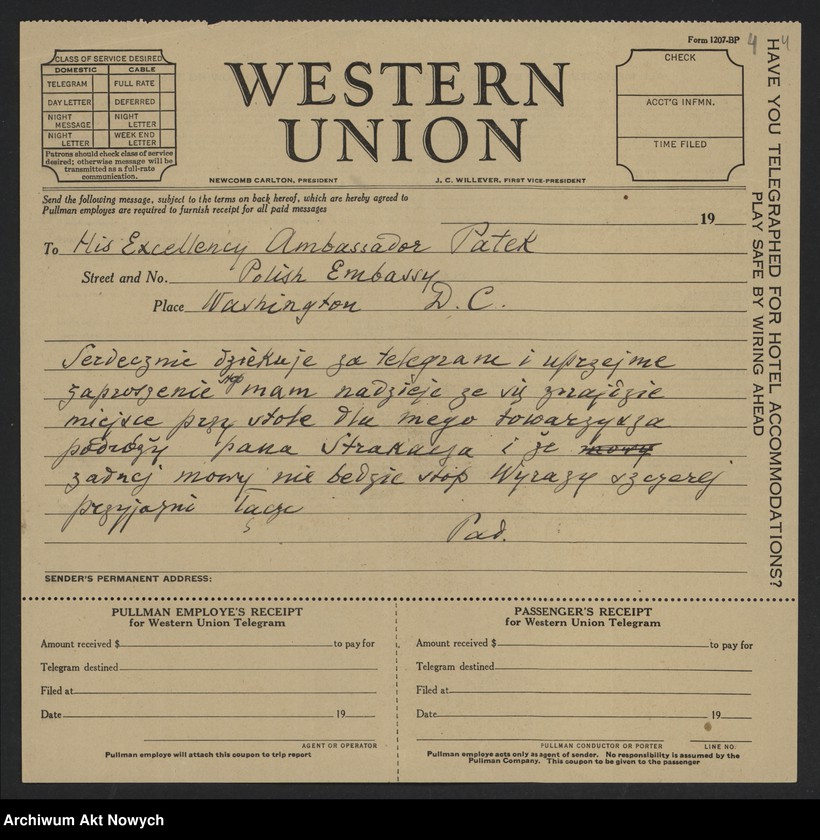 Form 1207-BP
4 4
CLASS OF SERVICE DESIRED
DOMESTIC CABLE
TELEGRAM FULL RATE
DAY LETTER DEFERRED
NIGHT MESSAGE NIGHT LETTER
NIGHT LETTER WEEK END LETTER
Patrons should check class of service
desired; otherwise message will be
transmitted as a full-rate
communication.
WESTERN
UNION
NEWCOMB CARLTON, PRESIDENT J. C. WILLEVER, FIRST VICE-PRESIDENT
CHECK
ACCT'G INFMN.
TIME FILED
HAVE YOU TELEGRAPHED FOR HOTEL ACCOMMODATIONS?
PLAY SAFE BY WIRING AHEAD
Send the following message, subject to the terms on back hereof, which are hereby agreed to
Pullman employes are required to furnish receipt for all paid messages
19
To His Excellency Ambassador Patek
Street and No. Polish Embassy
Place Washington D.C.
Serdecznie dziekuje za telegram i uprzejme
zaproszenie stop mam nadzieje ze się znajdzie
miejsce przy stole dla mego towarzysza
podroży pana Strakacza i że mowy
zadnej mowy nie bedzie stop Wyrazy szczerej
przyjazni łącze
Pad.
SENDER'S PERMANENT ADDRESS:
PULLMAN EMPLOYE'S RECEIPT
for Western Union Telegram
Amount received $ to pay for
Telegram destined
Filed at
Date 19
AGENT OR OPERATOR
Pullman employe will attach this coupon to trip report
PASSENGER'S RECEIPT
for Western Union Telegram
Amount received $ to pay for
Telegram destined
Filed at
Date 19
PULLMAN CONDUCTOR OR PORTER LINE NO.
Pullman employe acts only as agent of sender. No responsibility is assumed by the
Pullman Company. This coupon to be given to the passenger
Archiwum Akt Nowych